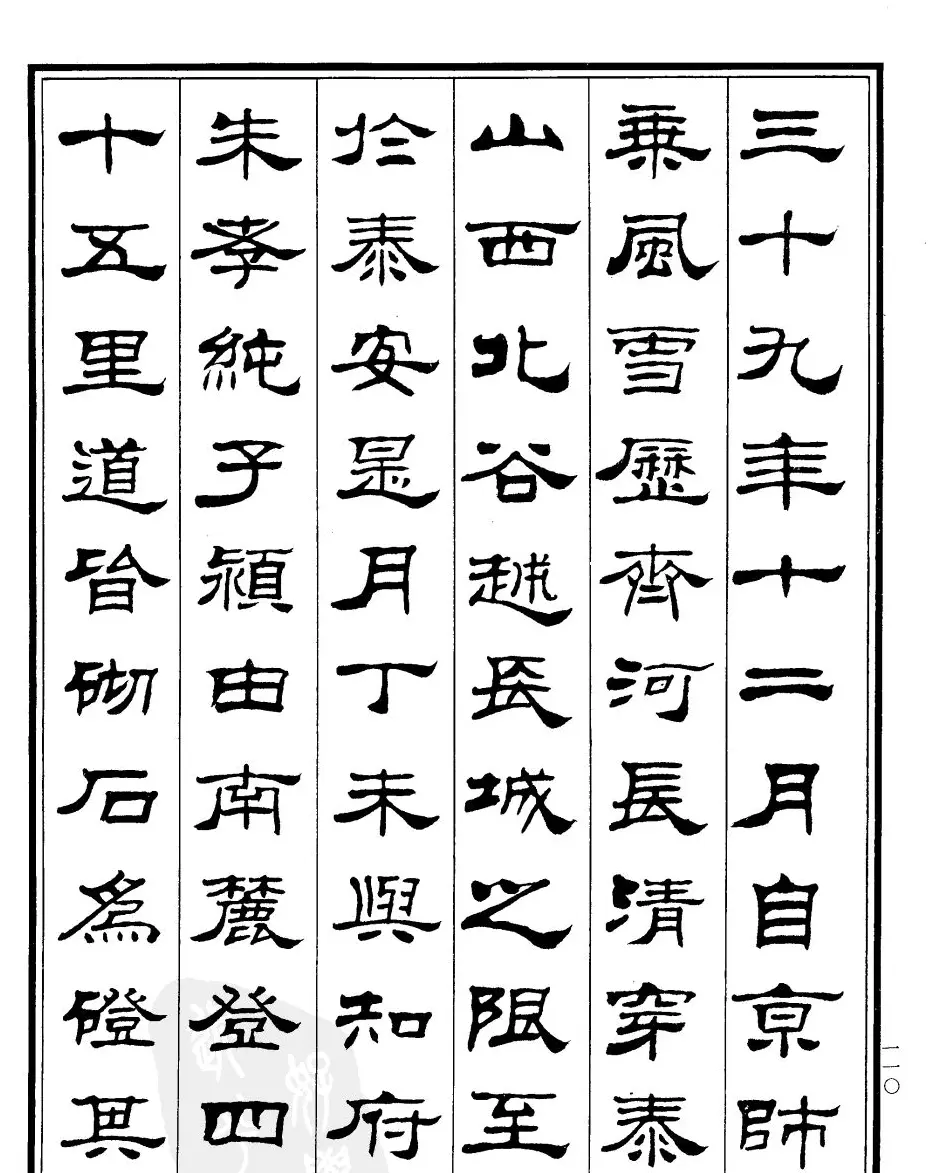 三十九年十二月自京師
乘風雪歷齊河長清穿泰
山西北谷越長城之限至
於泰安是月丁未與知府
朱孝純子潁由南麓登四
十五里道皆砌石為磴其
一一〇